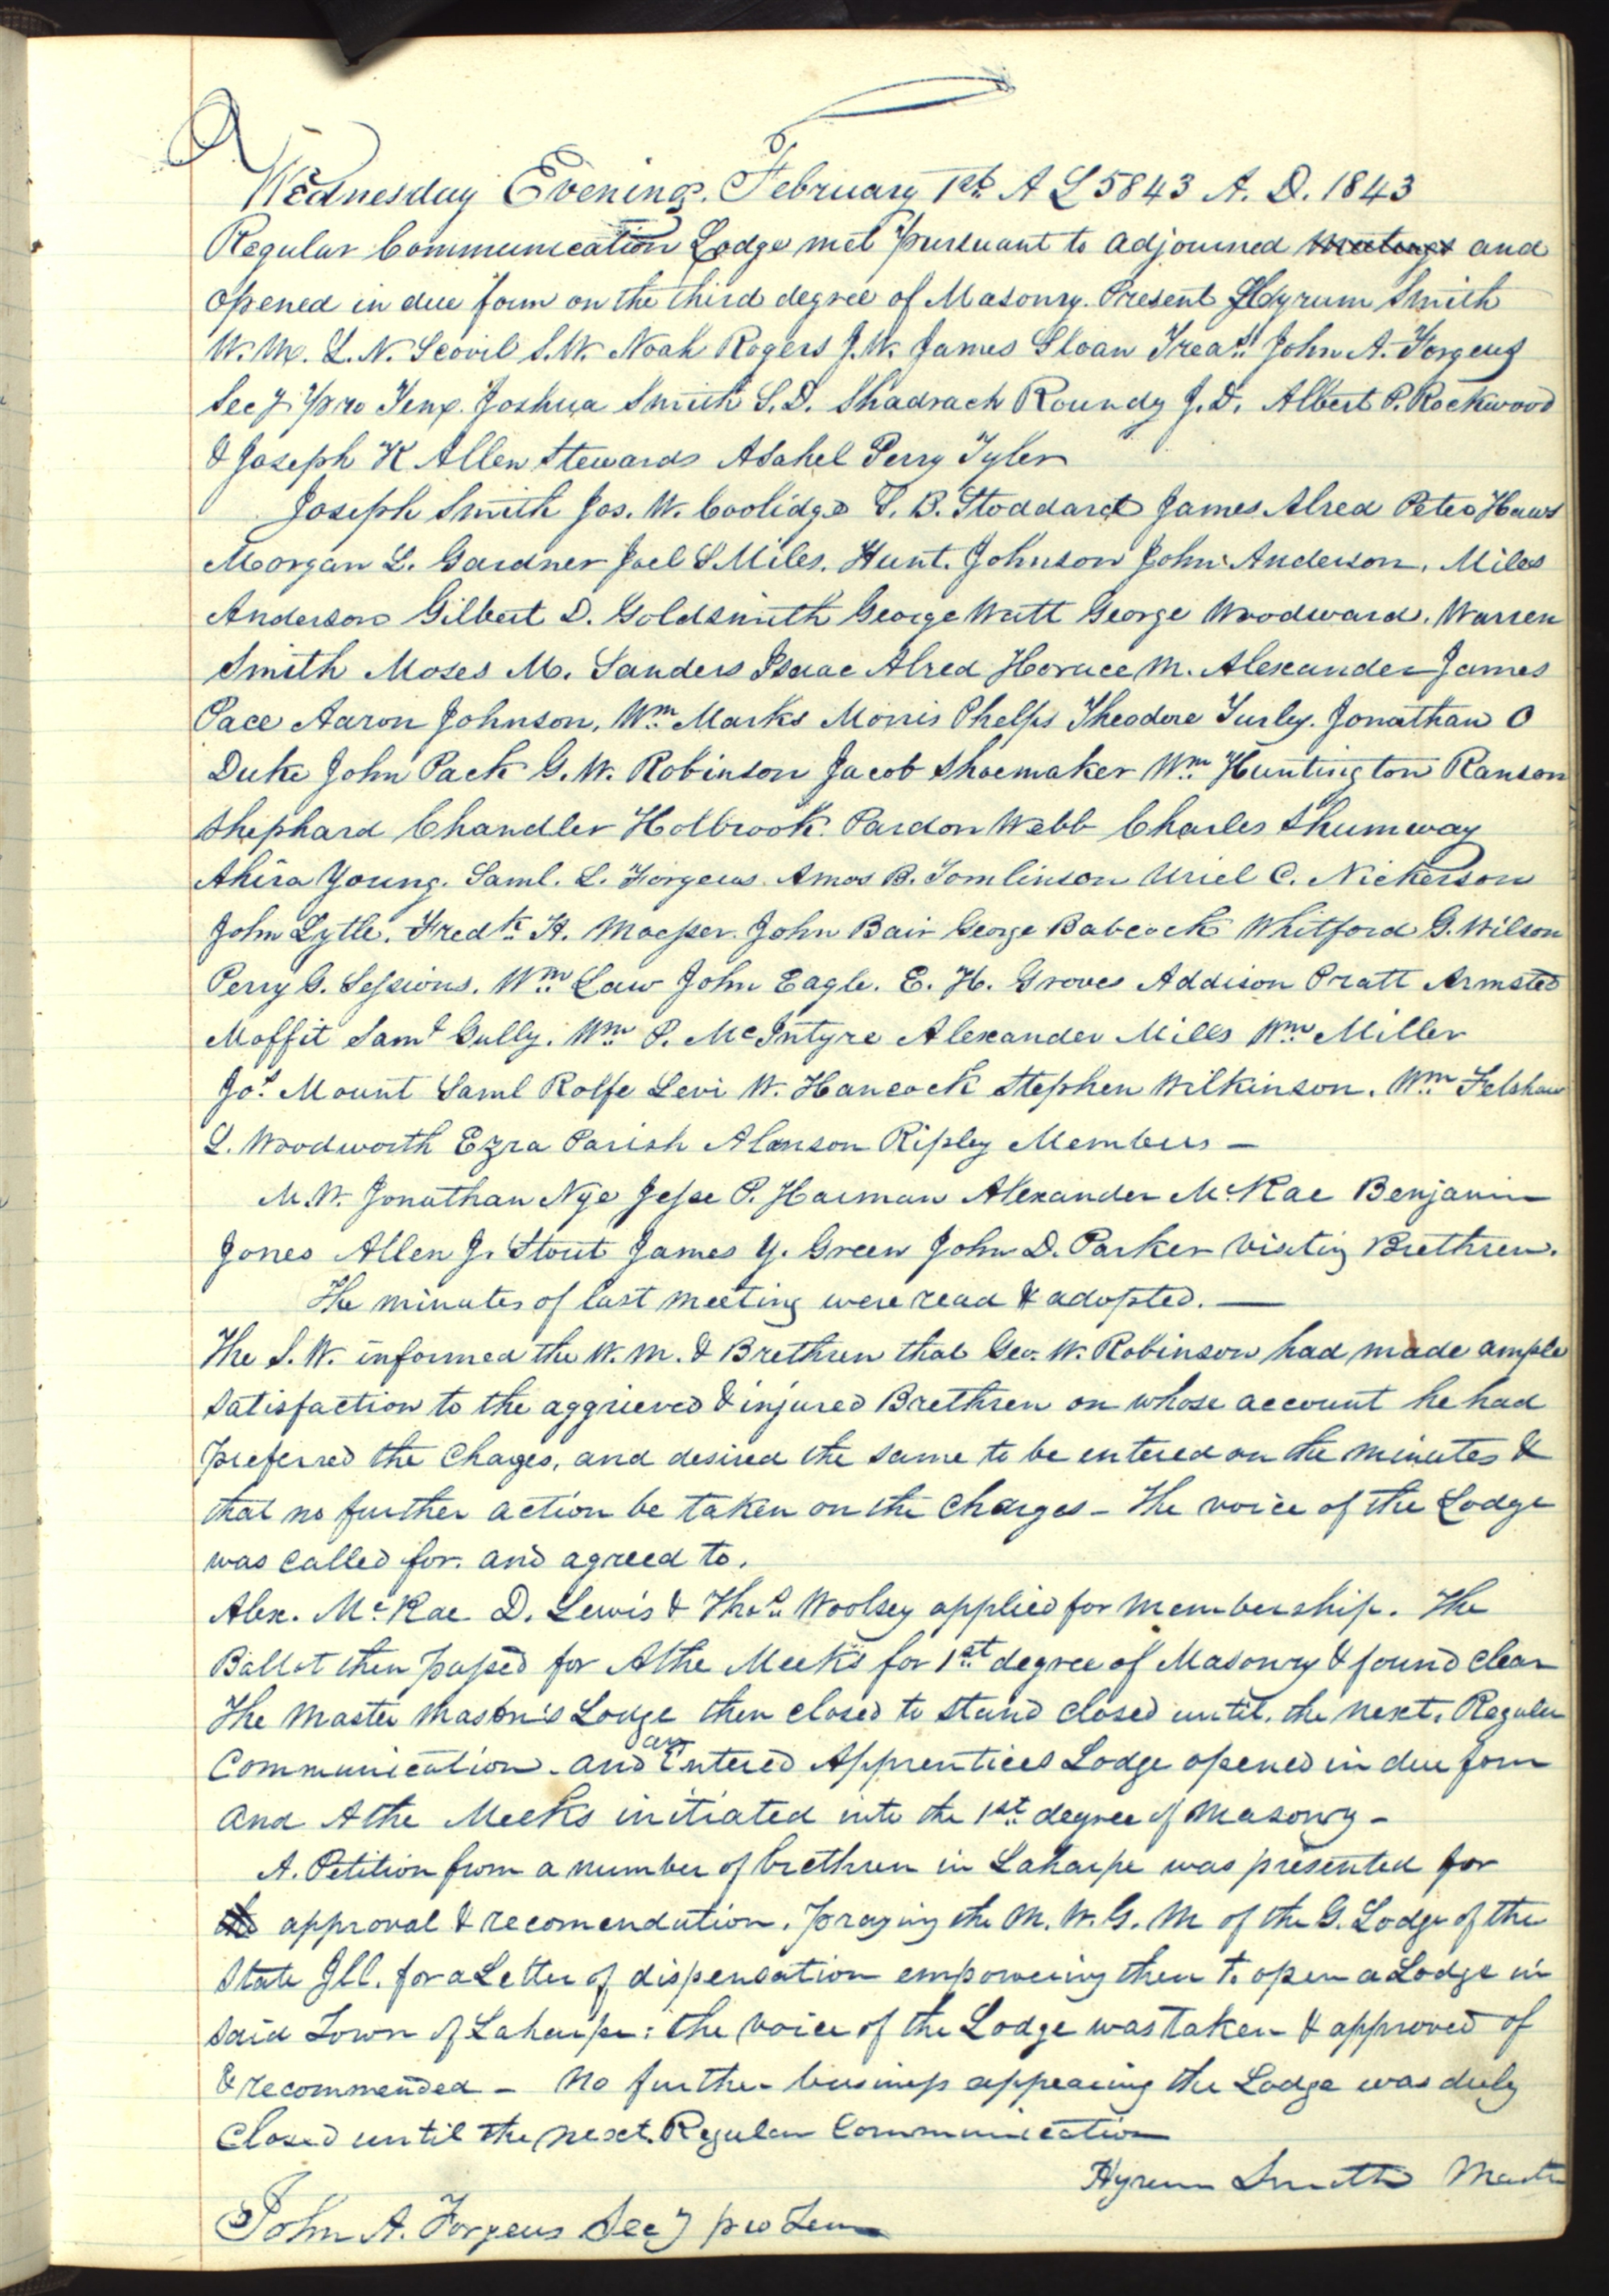 Wednesday Evening. February 1st. A L 5843 A. D. 1843
Regular Communication Lodge met pursuant to adjourned meetings and
opened in due form on the third degree of Masonry. Present Hyrum Smith
W. M. L. N. Scovil S. W. Noah Rogers J. W. James Sloan Treas. John A. Forgeus
Secy. pro Temp. Joshua Smith S. D. Shadrach Roundy J. D. Albert P. Rockwood
& Joseph K Allen Stewards Asahel Perry Tyler
Joseph Smith Jos. W. Coolidge S. B. Stoddard James Alred Peter Haws
Morgan L. Gardner Joel S Miles. Hunt. Johnson John Anderson, Miles
Anderson Gilbert D. Goldsmith George Watt George Woodward. Warren
Smith Moses M. Sanders Isaac Alred Horace M. Alexander James
Pace Aaron Johnson, Wm. Marks Morris Phelps Theodore Turley. Jonathan O
Duke John Pack G. W. Robinson Jacob Shoemaker Wm. Huntington Ranson
Shephard Chandler Holbrook. Pardon Webb Charles Shumway
Ahira Young. Saml. L. Forgeus. Amos B. Tomlinson Uriel C. Nickerson
John Lytle. Fredk. H. Moesser. John Bair George Babcock Whitford G. Wilson
Perry G. Sessions. Wm. Law John Eagle. E. H. Groves Addison Pratt Armsted
Moffit Saml Gully. Wm. P. McIntyre Alexander Mills Wm. Miller
Jos. Mount Saml Rolfe Levi W. Hancock Stephen Wilkinson. Wm Felshaw
L. Woodworth Ezra Parish Alanson Ripley Members —
M. W. Jonathan Nye Jesse P. Harman Alexander McRae Benjamin
Jones Allen J. Stout James Y. Green John D. Parker Visiting Brethren.
The minutes of last meeting were read & adopted. —
The S. W. informed the W. M. & Brethren that Geo. W. Robinson had made ample
satisfaction to the aggrieved & injured Brethren on whose account he had
preferred the Chages, and desired the same to be entered on the minutes &
that no further action be taken on the Charges – The voice of the Lodge
was called for. and agreed to.
Alex. McRae D. Lewis & Thos. Woolsey applied for membership. The
Ballot then passed for Athe Meeks for 1st. degree of Masonry & found clear
The Master Mason's Lodge then closed to stand closed until, the next. Regular
Communication. and an Entered Apprentices Lodge opened in due form
and Athe Meeks initiated into the 1st. degree of Masonry –
A. Petition from a number of brethren in Laharpe was presented for
approval & recomendation. praying the M. W. G. M of the G. Lodge of the
State Ill. for a Letter of dispensation empowering them to open a Lodge in
said Town of Laharpe: the voice of the Lodge was taken & approved of
& recommended – No further business appearing the Lodge was duly
closed until the next. Regular Communication
Hyrum Smith Master
John A. Forgeus Secy pro Tem